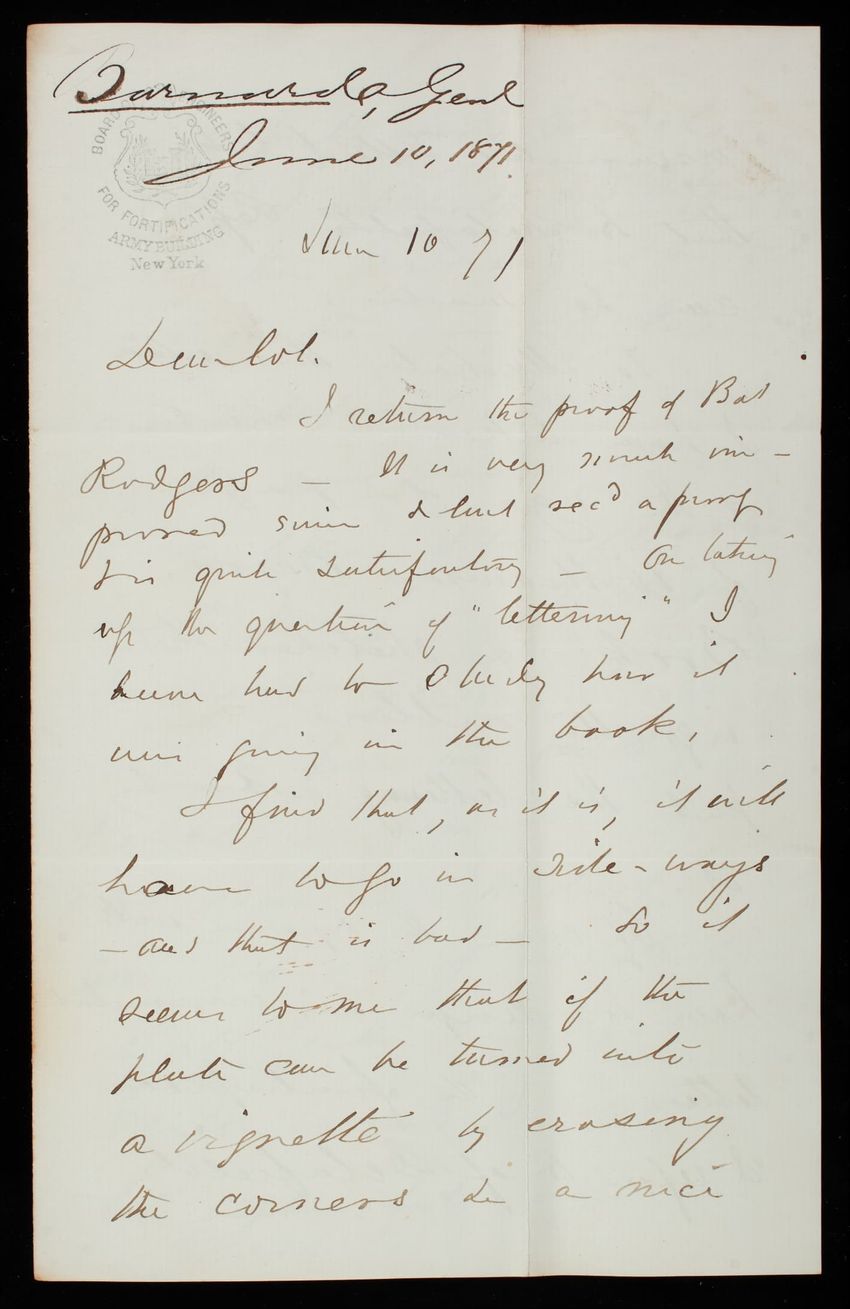 Barnard, Genl
June 10, 1871.
BOARD OF ENGINEERS
FOR FORTIFICATIONS
ARMY BUILDING
New York
June 10 71
Dear Col.
I return the proof of Bat
Rodgers — It is very much im-
proved since I last rec'd a proof
& is quite satisfactory — On taking
up the question of "lettering" I
have had to study how it
was going in the book.
I find that, as it is, it will
have to go in side-ways
— and that is bad — So it
seems to me that if the
plate can be turned into
a vignette by erasing
the corners in a nice